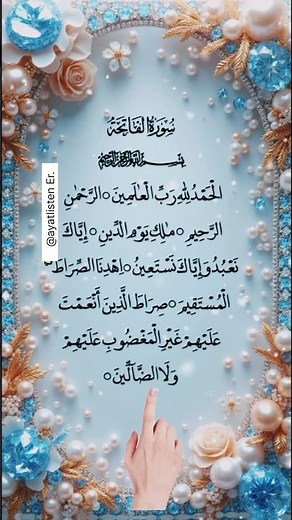 سُوْرَةُ الْفَاتِحَة
بِسْمِ اللّٰهِ الرَّحْمٰنِ الرَّحِيْمِ
الْحَمْدُ لِلّٰهِ رَبِّ الْعٰلَمِيْنَ ۝ الرَّحْمٰنِ
الرَّحِيْمِ ۝ مٰلِكِ يَوْمِ الدِّيْنِ ۝ اِيَّاكَ
نَعْبُدُ وَاِيَّاكَ نَسْتَعِيْنُ ۝ اِهْدِنَا الصِّرَاطَ
الْمُسْتَقِيْمَ ۝ صِرَاطَ الَّذِيْنَ اَنْعَمْتَ
عَلَيْهِمْ غَيْرِ الْمَغْضُوْبِ عَلَيْهِمْ
وَلَا الضَّآلِّيْنَ ۝
@ayatlisten Er.